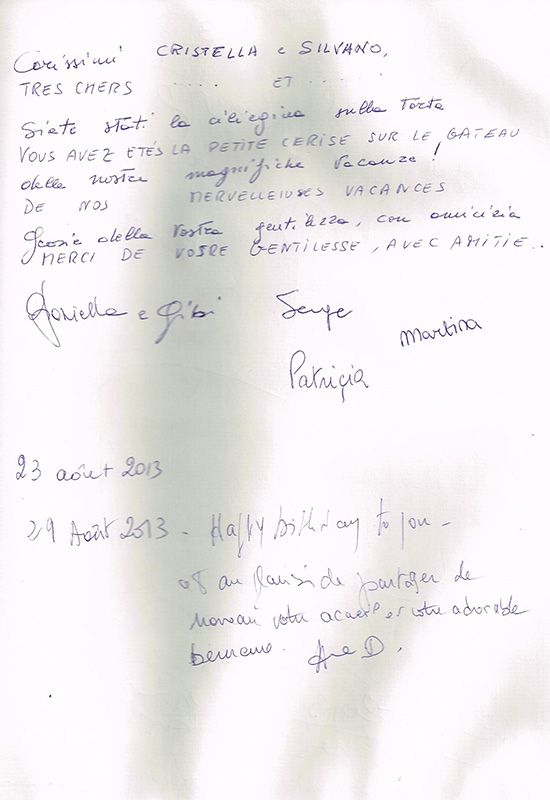 Carissimi CRISTELLA e SILVANO,
TRES CHERS ..... ET .....
Siete stati la ciliegina sulla torta
VOUS AVEZ ETÉS LA PETITE CERISE SUR LE GATEAU
delle nostre magnifiche vacanze!
DE NOS MERVELLEIUSES VACANCES
Grazie della vostra gentilezza, con amicizia
MERCI DE VOTRE GENTILESSE, AVEC AMITIE..
Daniella e Gibi Serge
Martina
Patrizia
23 aôut 2013
29 Août 2013 - Happy birthday to you -
au plaisir de partager de
nouveau votre accueil et votre adorable
D.